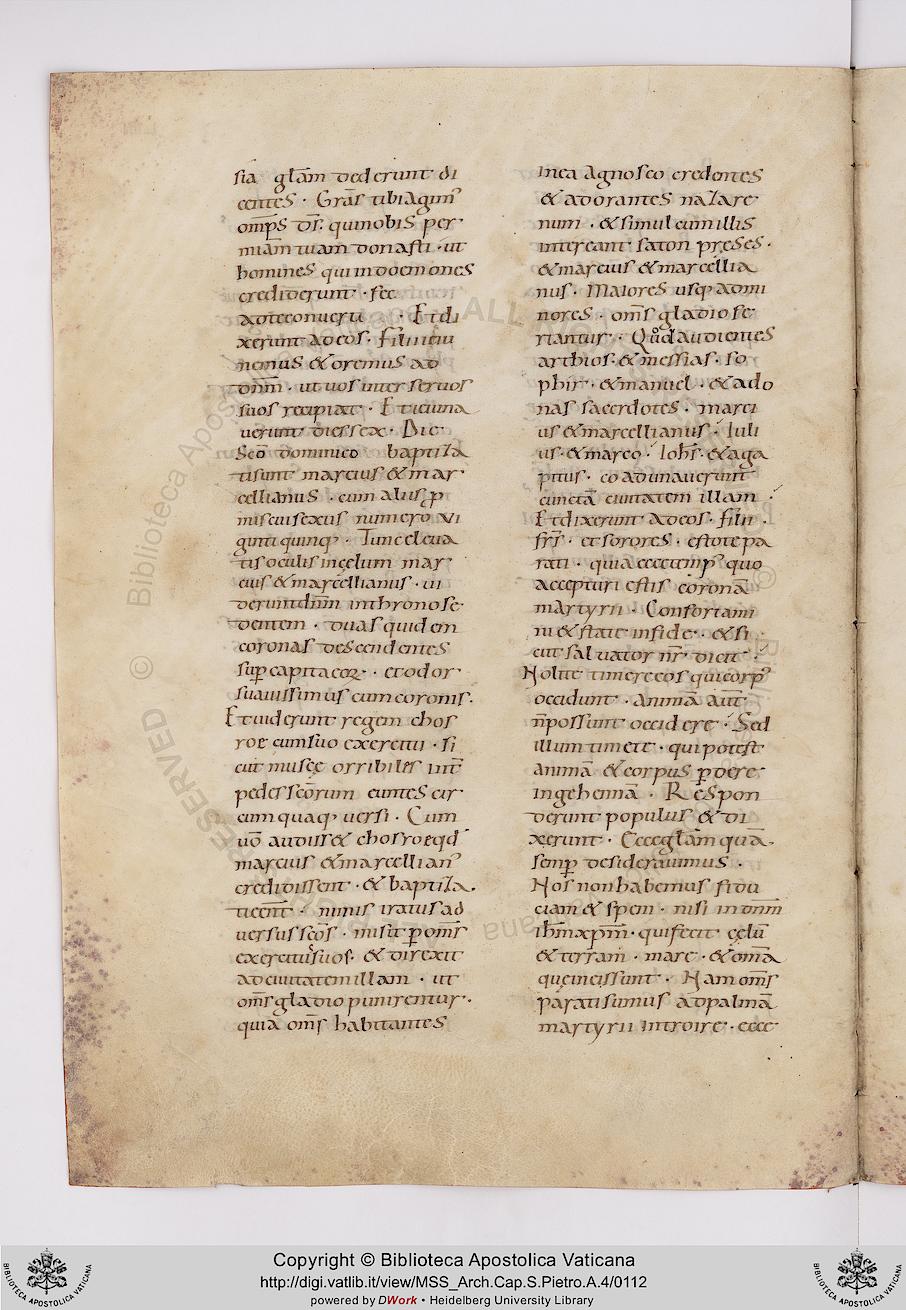 sia gl̄am dederunt di
centes · Grās tibi agim᾽
om̄ps d̄s · qui nobis per
miām tuam donasti · ut
homines qui in doemones
crediderunt · sec
ad te converti · Et di
xerunt ad eos · filii ieiu
nemus & oremus ad
dn̄m · ut vos inter servos
suos recipiat · Et ieiuna
verunt dies sex · Die
Scō dominico baptiza
ti sunt marcius & mar
cellianus · cum aliis p
miscui sexus numero vi
ginti quinq; · Tunc eleva
tis oculis in cęlum mar
cius & marcellianus · vi
derunt dn̄m in throno se
dentem · duas quidem
coronas descendentes
sup capita eoꝝ · et odor
suavissimus cum coronis ·
Et viderunt regem chos
roe cum suo exercitu · si
cut muscę orribiles int̄
pedes scōrum euntes cir
cum quaq; versi · Cum
vō audiss& chosroe qd
marcius & marcellian᾽
credidissent · & baptiza
ti eēnt · nimis iratus ad
versus scōs · misit p om̄s
exercitus suos · & direxit
ad civitatem illam · ut
om̄s gladio punirentur ·
quia om̄s habitantes
in ea agnosco credentes
& adorantes nazare
num · & simul cum illis
intereant · saton pręses ·
& marcius & marcellia
nus · Maiores usq; ad mi
nores · om̄s gladio fe
riantur · Quod audientes
arthios · & messias · so
phir · & manuel · & ado
nas sacerdotes · marci
us & marcellianus · Iuli
us · & marco · Ioh̄s · & aga
pitus · coadunaverunt
cunctā civitatem illam ·
Et dixerunt ad eos · filii ·
fr̄s · et sorores · estote pa
rati · quia ecce temp᾽ quo
accepturi estis coronā
martyrii · Confortami
ni & state in fide · & si
cut salvator nr̄ · dicit ·
Nolite timere eos qui corp᾽
occidunt · animā aūt
n̄ possunt occidere · Sed
illum timete · qui potest
animā & corpus pdere
in gehennā · Respon
derunt populus & di
xerunt · Ecce gl̄am quā
semp desideravimus ·
Nos non habemus fidu
ciam & spem · nisi in dn̄m
ih̄m xp̄m · qui fecit cęlū
& terram · mare · & om̄a
que in eis sunt · Nam om̄s
parati sumus ad palmā
martyrii introire · ecce
Copyright © Biblioteca Apostolica Vaticana
http://digi.vatlib.it/view/MSS_Arch.Cap.S.Pietro.A.4/0112
powered by DWork • Heidelberg University Library